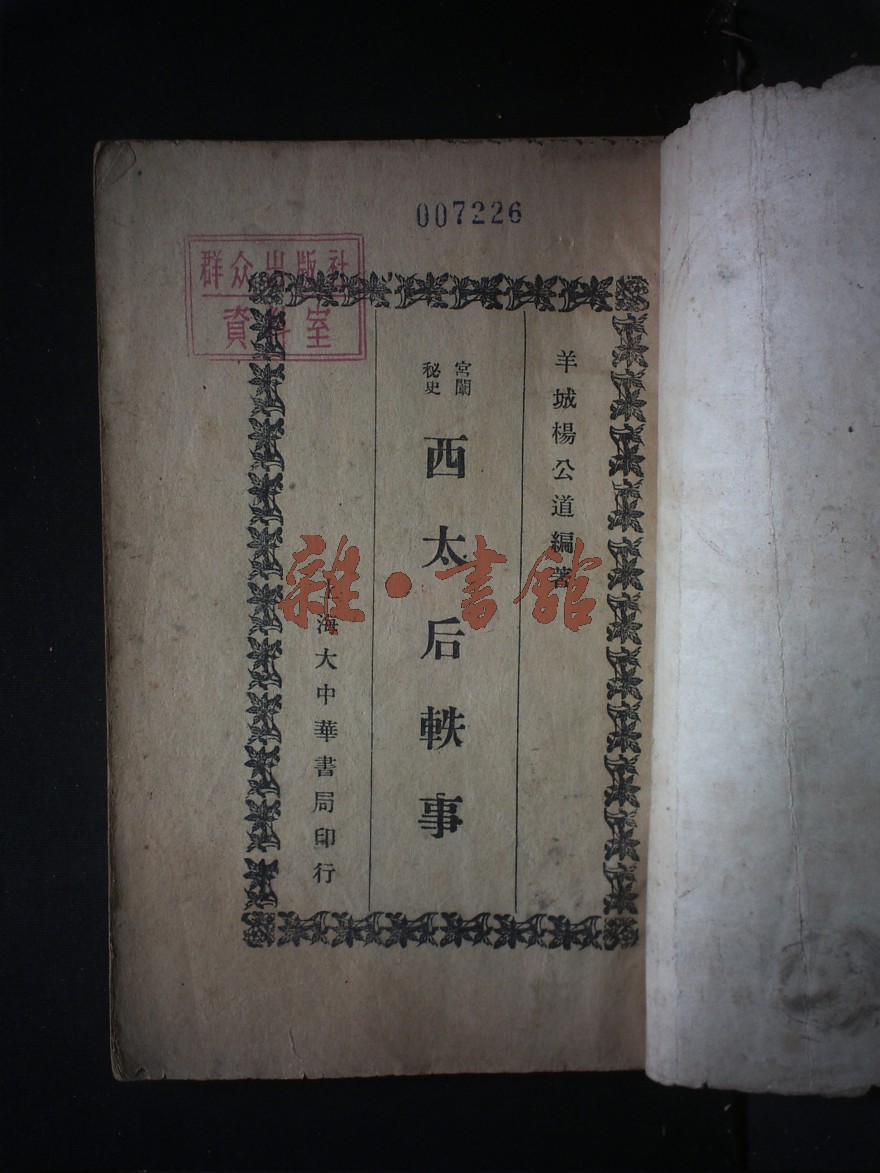 007226
群众出版社
資料室
羊城楊公道編著
宮闈
秘史
西太后軼事
上海大中華書局印行
雜·書館